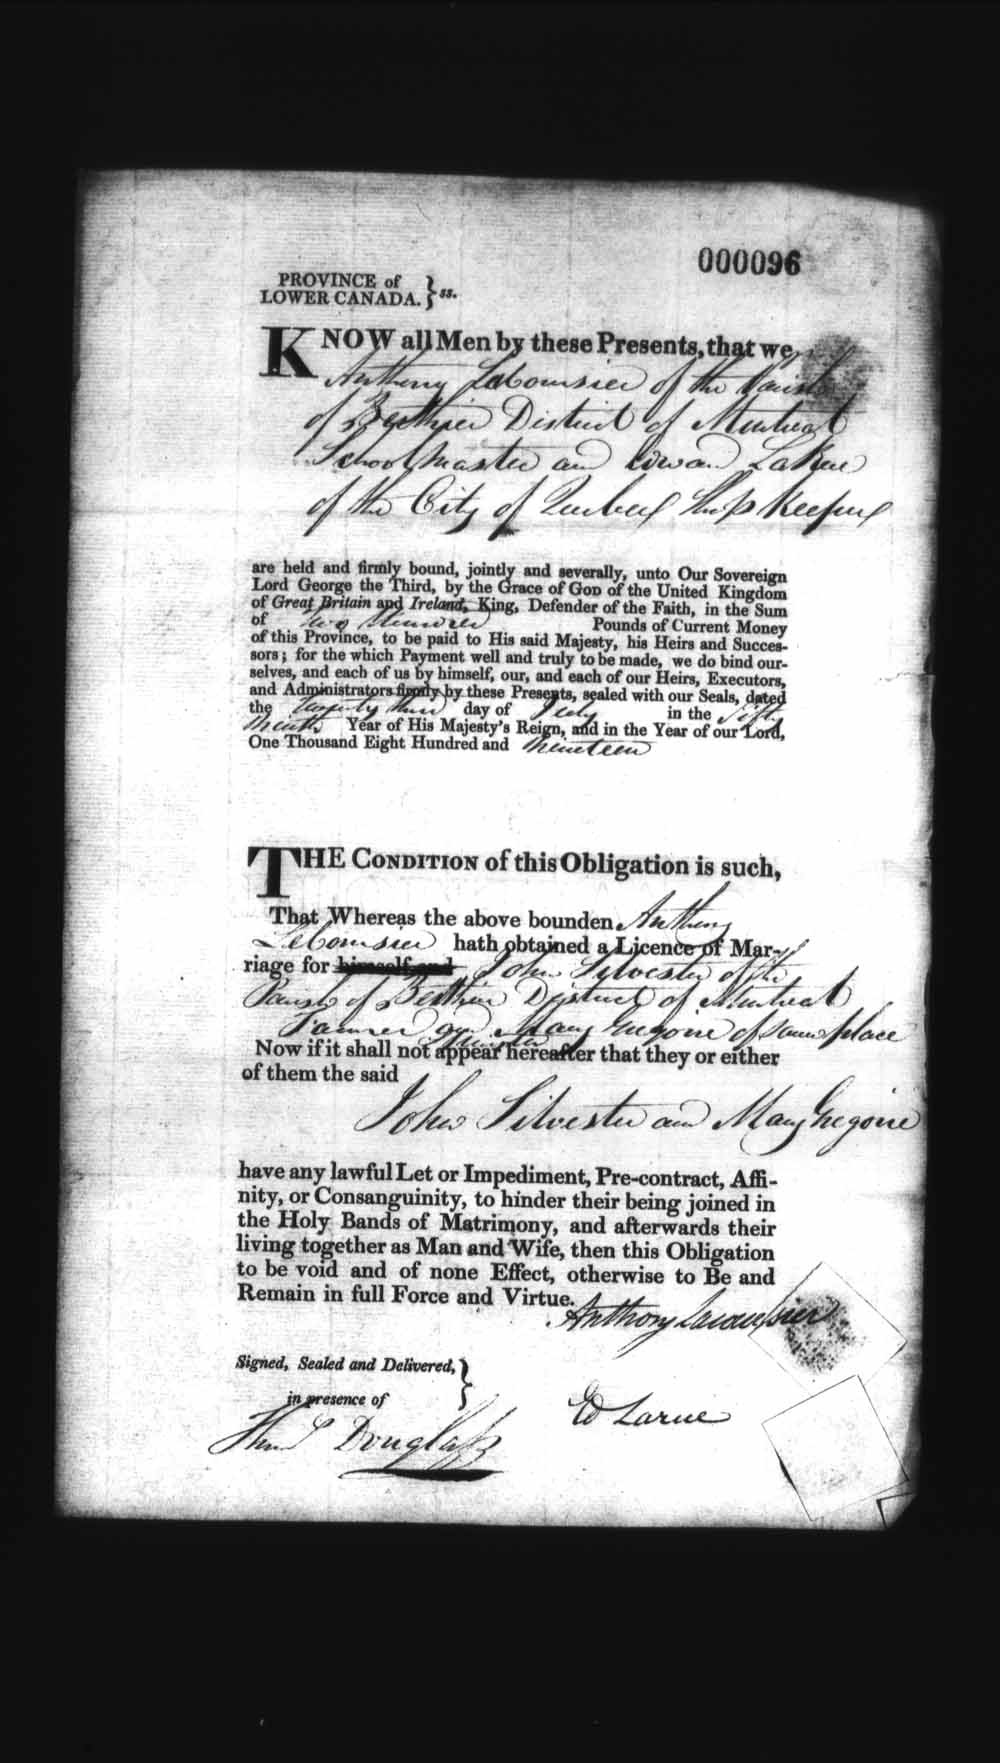 000096
PROVINCE of
LOWER CANADA. } ss.
KNOW all Men by these Presents, that we
Anthony Leboursier of the Parish
of Berthier District of Montreal
Schoolmaster and Edward LaRue
of the City of Quebec Shopkeeper
are held and firmly bound, jointly and severally, unto Our Sovereign
Lord George the Third, by the Grace of GOD of the United Kingdom
of Great Britain and Ireland, King, Defender of the Faith, in the Sum
of two Hundred Pounds of Current Money
of this Province, to be paid to His said Majesty, his Heirs and Succes-
sors; for the which Payment well and truly to be made, we do bind our-
selves, and each of us by himself, our, and each of our Heirs, Executors,
and Administrators firmly by these Presents, sealed with our Seals, dated
the twenty third day of July in the Fifty
Ninth Year of His Majesty's Reign, and in the Year of our Lord,
One Thousand Eight Hundred and nineteen
THE CONDITION of this Obligation is such,
That Whereas the above bounden Anthony
Leboursier hath obtained a Licence of Mar-
riage for himself and John Silvester of the
Parish of Berthier District of Montreal
Farmer and Mary Gregoire of same place
Spinster
Now if it shall not appear hereafter that they or either
of them the said
John Silvester and Mary Gregoire
have any lawful Let or Impediment, Pre-contract, Affi-
nity, or Consanguinity, to hinder their being joined in
the Holy Bands of Matrimony, and afterwards their
living together as Man and Wife, then this Obligation
to be void and of none Effect, otherwise to Be and
Remain in full Force and Virtue.
Anthony
Signed, Sealed and Delivered, }
in presence of
Ed Larue
Douglass